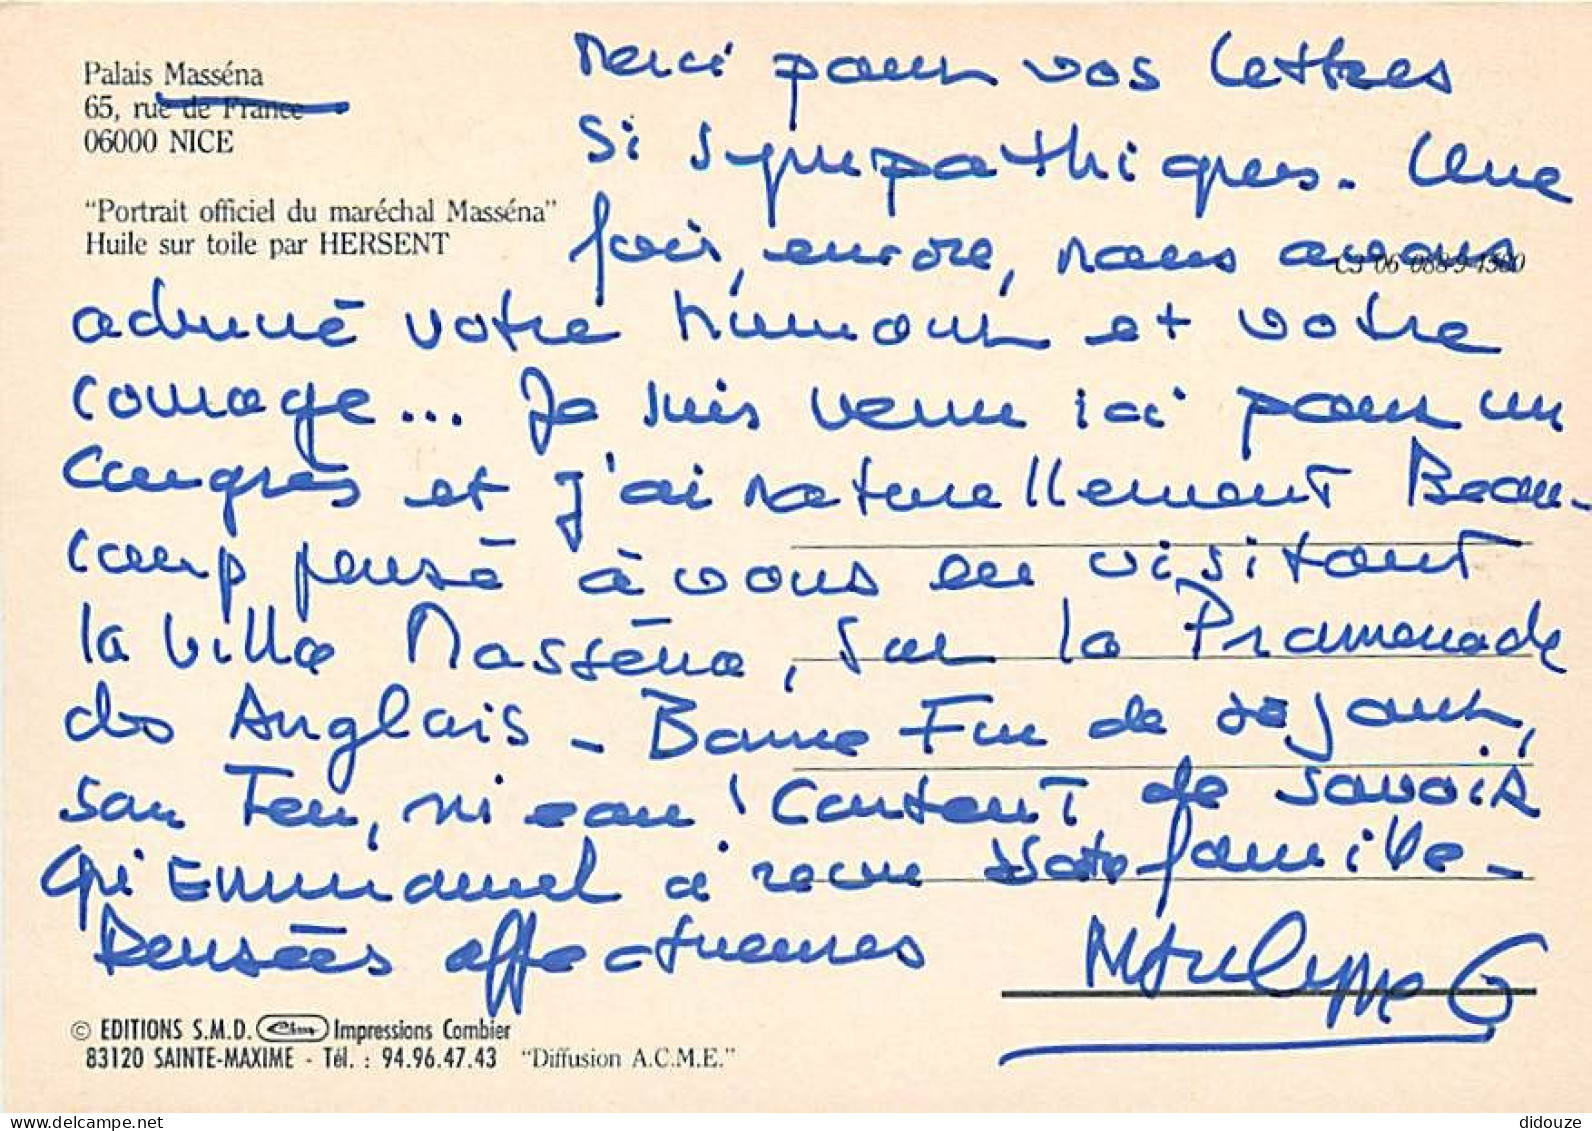 Palais Masséna
65, rue de France
06000 NICE
"Portrait officiel du maréchal Masséna"
Huile sur toile par HERSENT
C3 06 088-9-1580
Merci pour vos lettres
si sympathiques. Une
fois, encore, nous avons
admiré votre humour et votre
courage... Je suis venu ici pour un
Congrès et j'ai naturellement Beau-
coup pensé à vous en visitant
la villa Masséna, sur la Promenade
des Anglais - Bonne Fin de séjour,
san Feu, ni eau! Content de savoir
qu'Emmanuel a revu famille -
Pensées affectueuses
© EDITIONS S.M.D. Cim Impressions Combier
83120 SAINTE-MAXIME - Tél. : 94.96.47.43 "Diffusion A.C.M.E."
delcampe.net
didouze